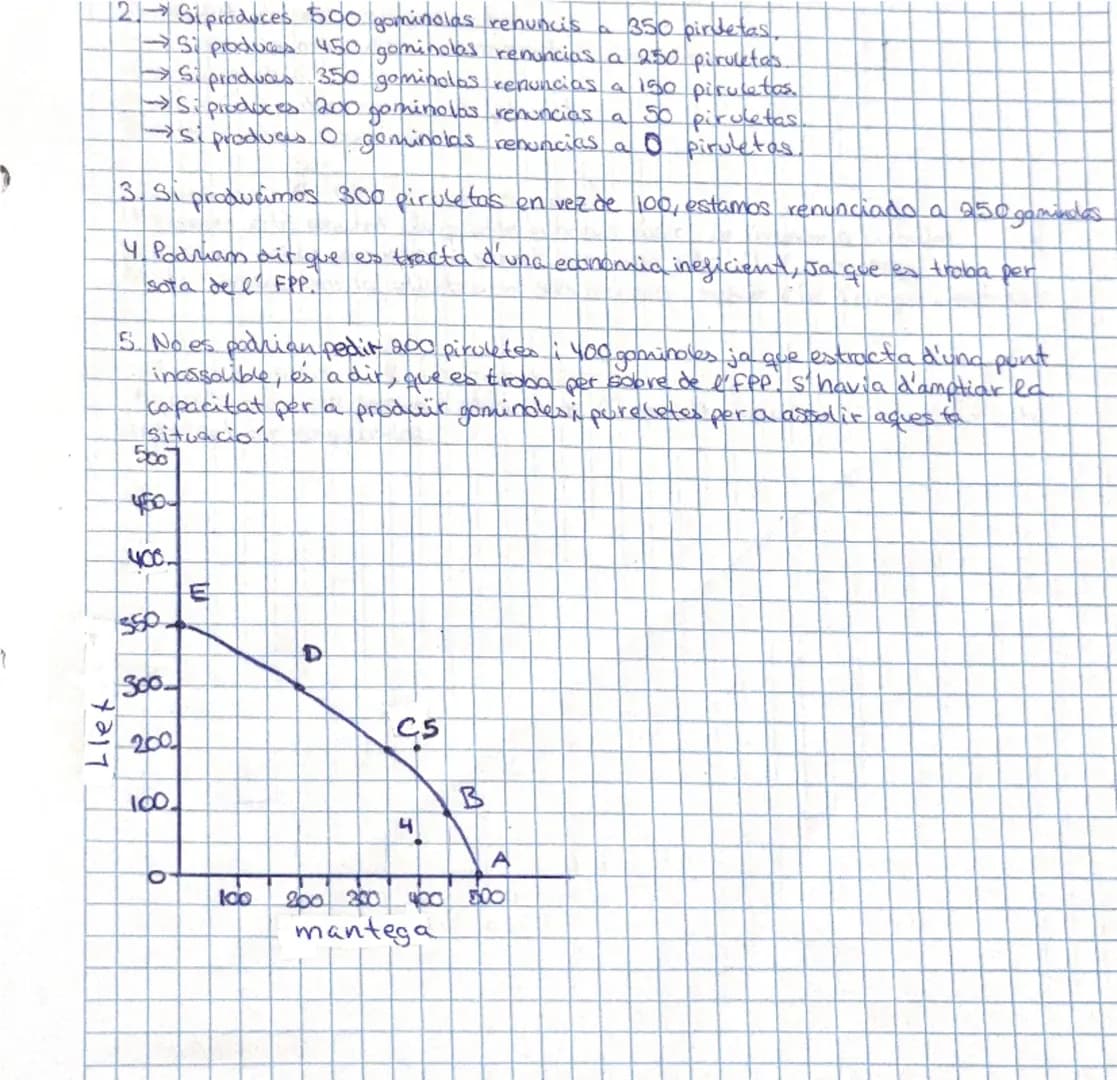 2. → Si produces 500 gominolas renuncis a 350 piruletas.
→ Si produces 450 gominolas renuncias a 250 piruletas.
→ Si produces 350 gominolas renuncias a 150 piruletas.
→ Si produces 200 gominolas renuncias a 50 piruletas.
→ Si produces 0 gominolas renuncias a 0 piruletas.
3. Si producimos 300 piruletas en vez de 100, estamos renunciado a 250 gominolas
4. Podriam dir que es tracta d'una economia ineficient, Ja que es troba per
sota de l' FPP.
5. No es podrian pedir 200 piruletes i 400 gominoles ja que estracta d'una punt
inassolible, és a dir, que es troba per sobre de l'FPP. S'havia d'ampliar la
capacitat per a produir gominoles i pureletes per a assolir aquesta
situació.
500
450
400
E
350
D
300
C 5
200
B
100
4
A
0
100 200 300 400 500
Llet
mantega